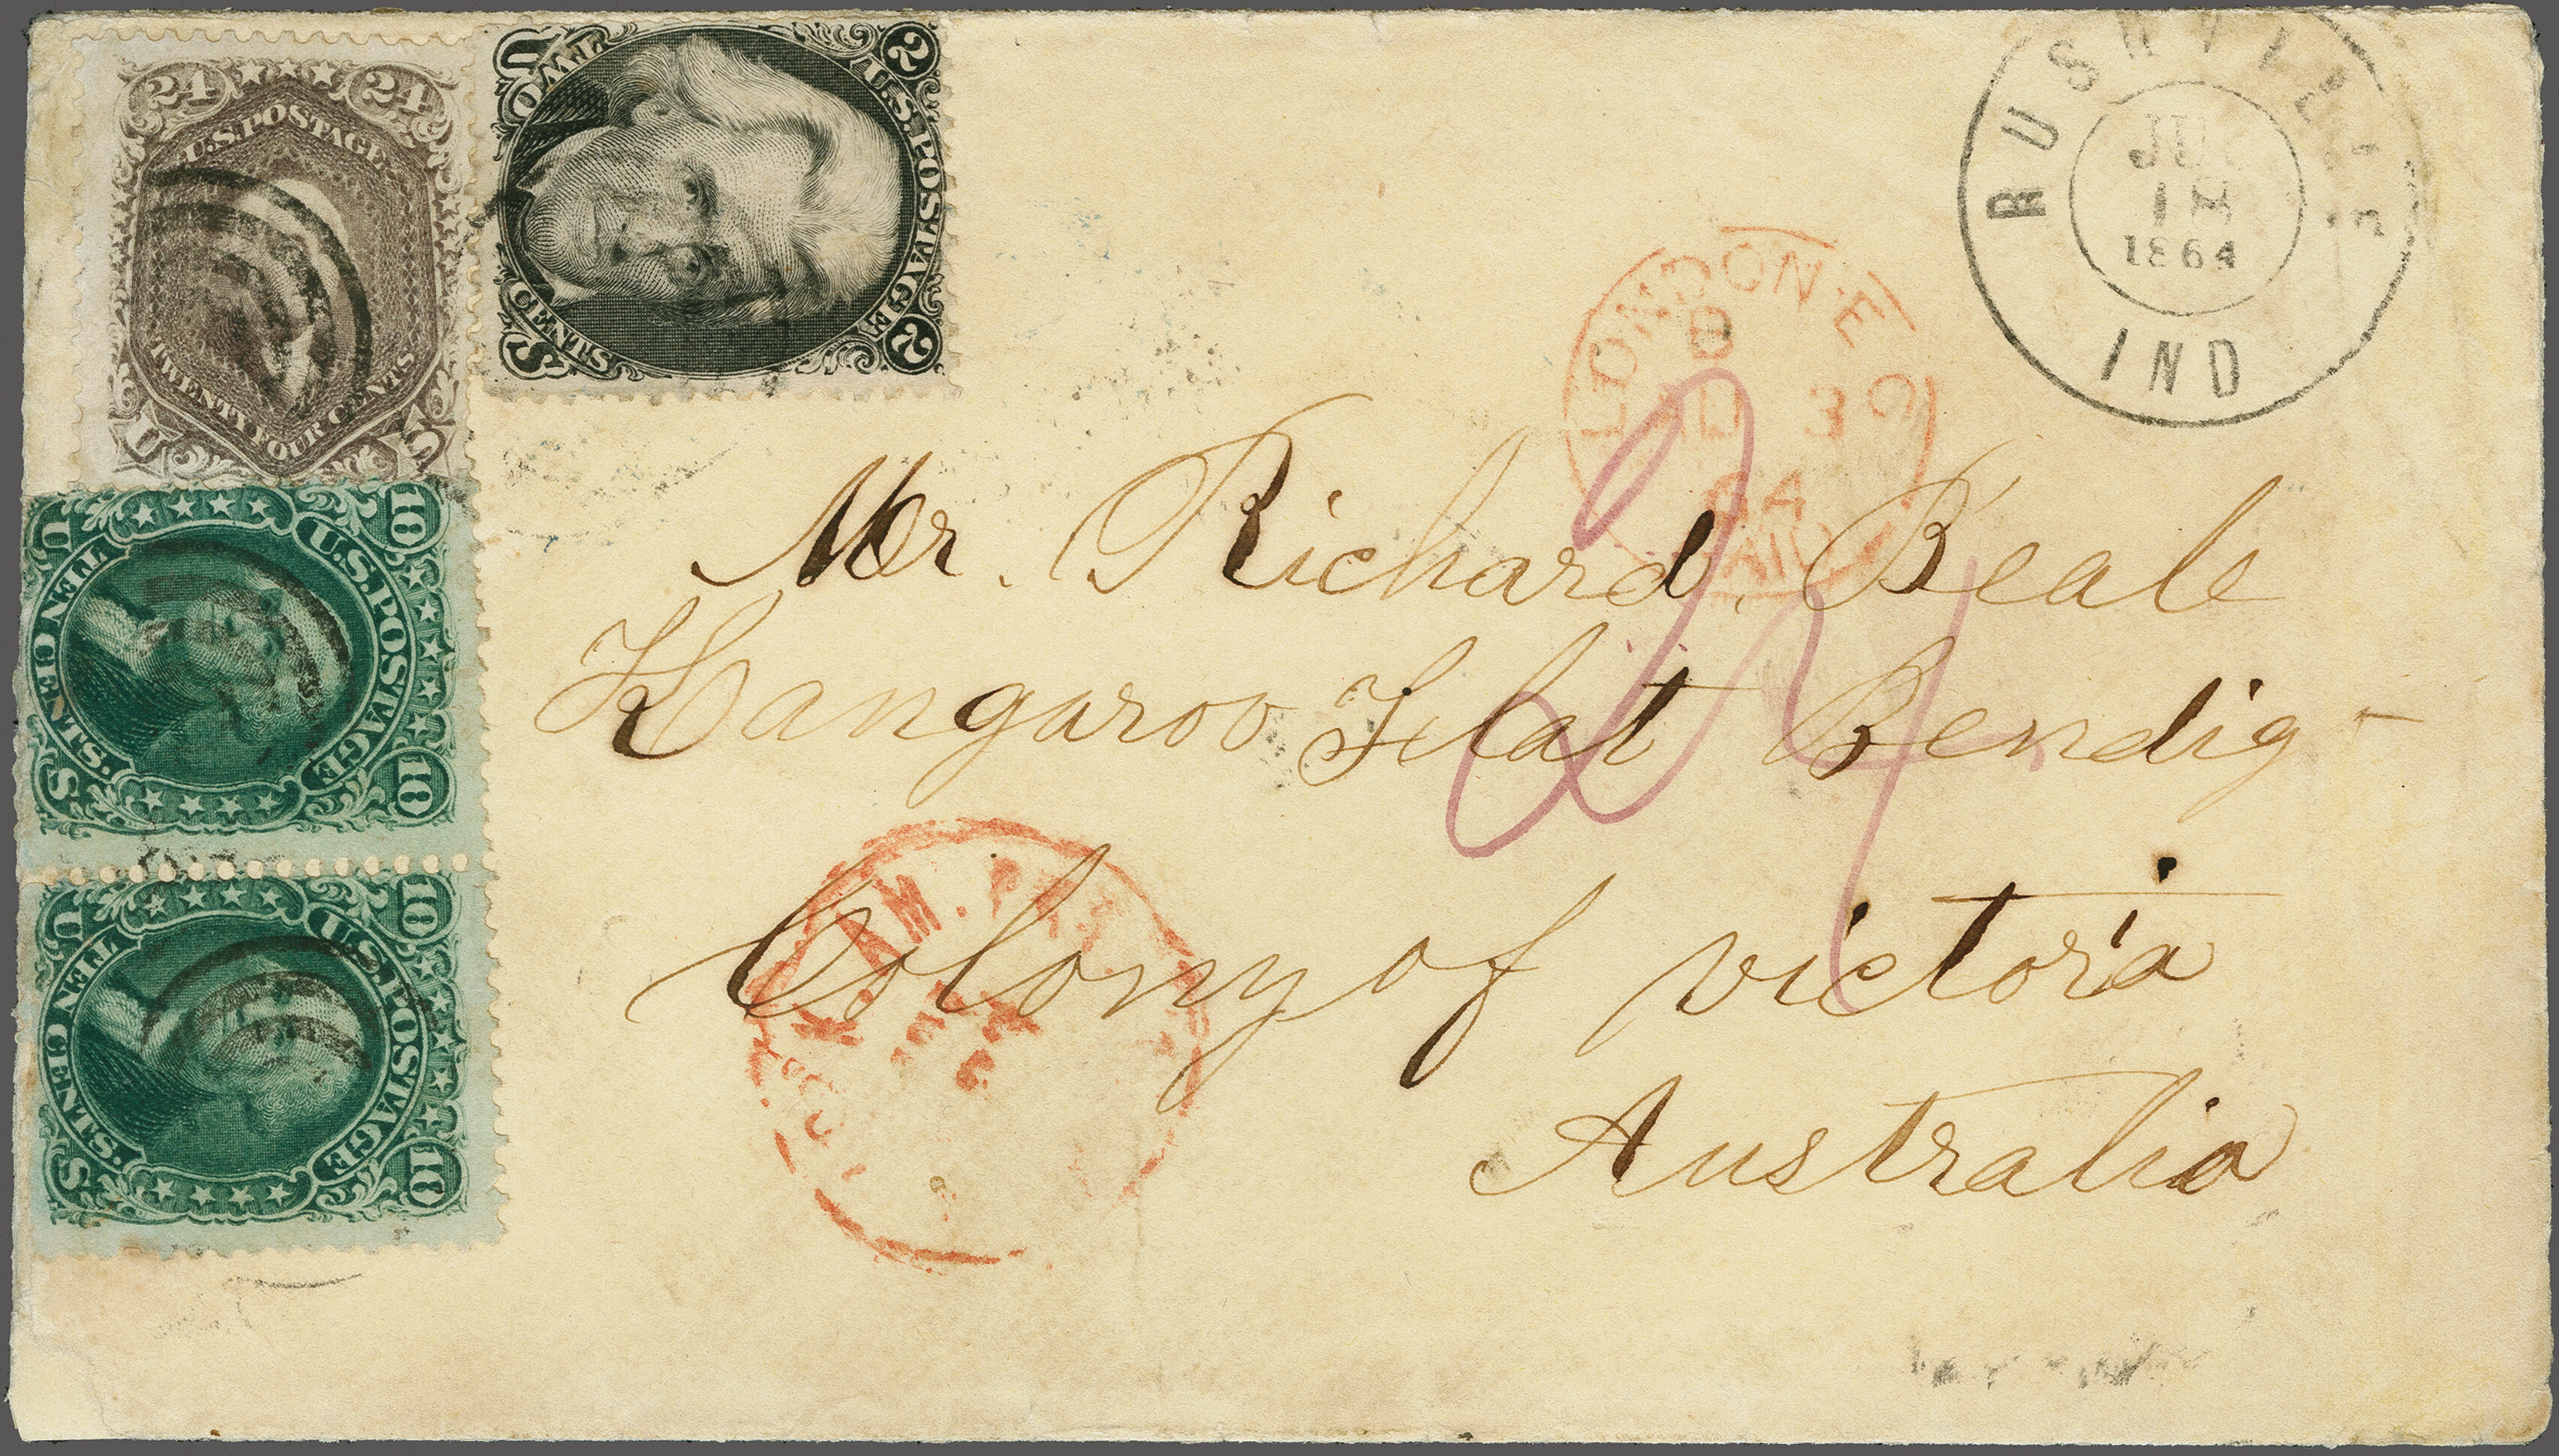 24 24
U.S. POSTAGE
TWENTY FOUR CENTS
U S
U 2
U.S. POSTAGE
TWO CENTS
S 2
U 10
U.S. POSTAGE
TEN CENTS
S 10
U 10
U.S. POSTAGE
TEN CENTS
S 10
RUSHVILLE
18
1864
IND
LONDON·E C
3
64
PAID
Mr. Richard. Beale
Kangaroo Flat Bendig-
Colony of victoria
Australia
AM. P